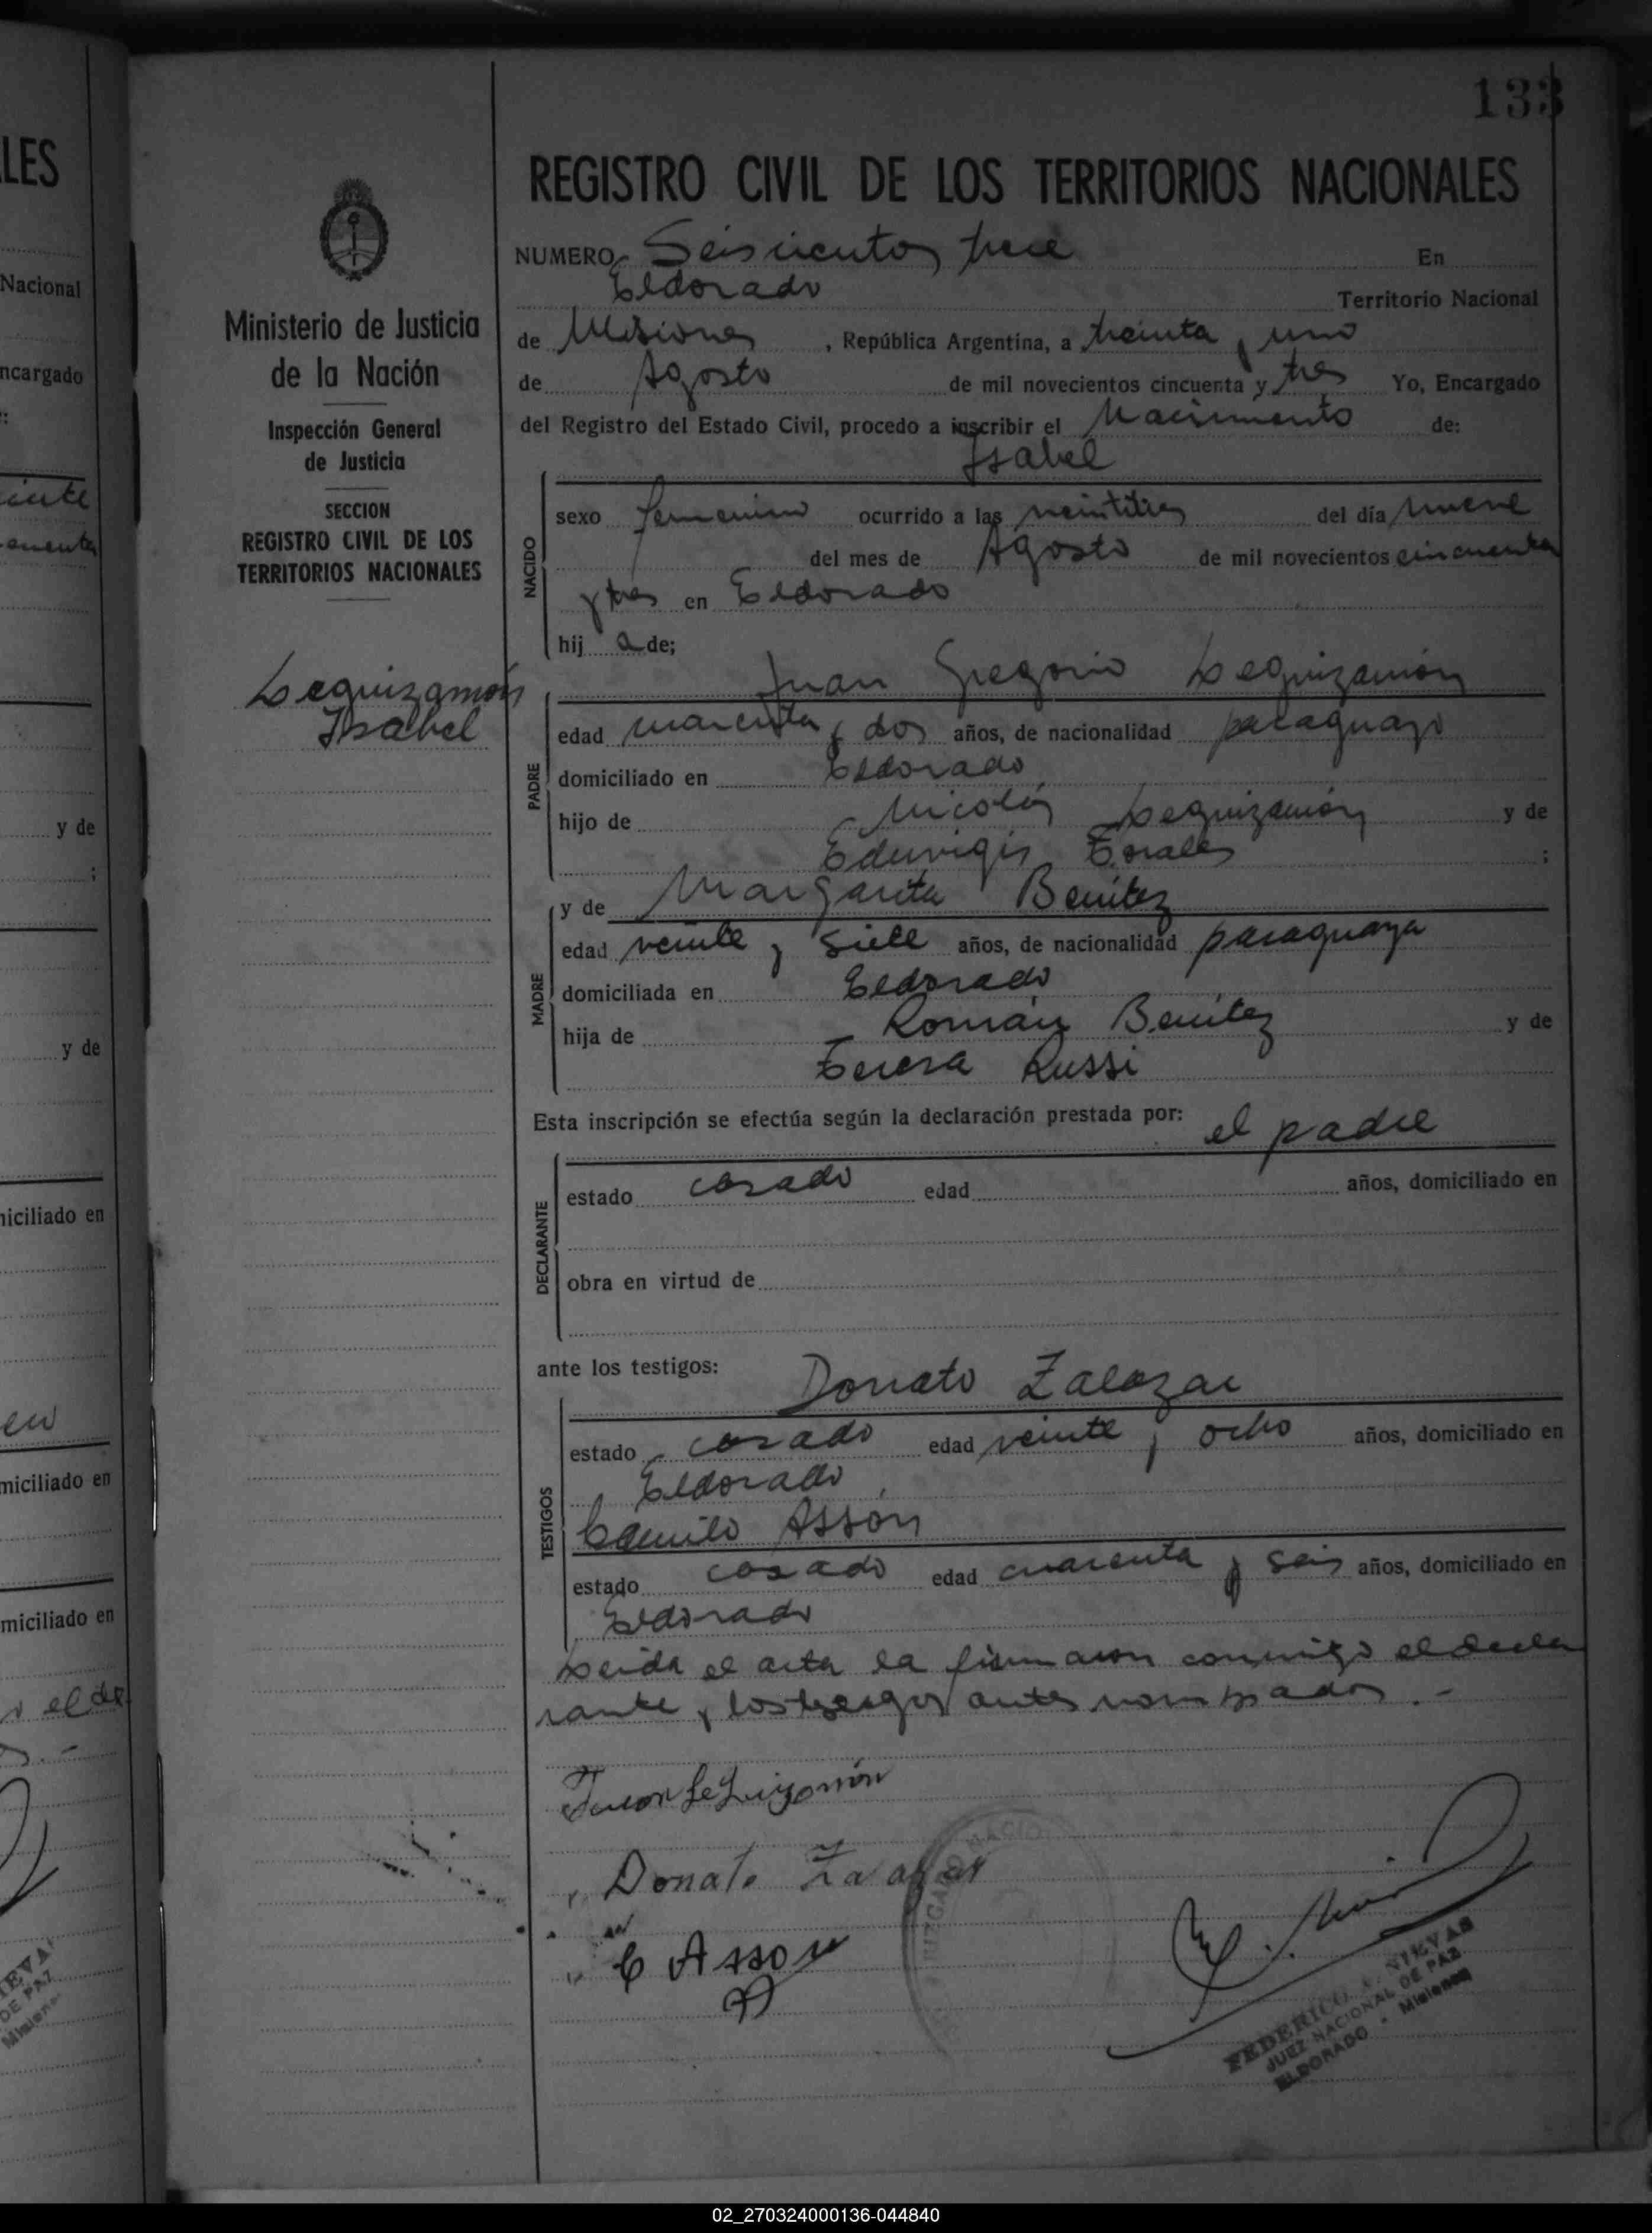 133
REGISTRO CIVIL DE LOS TERRITORIOS NACIONALES
NUMERO Seiscientos trece En
Eldorado Territorio Nacional
de Misiones, República Argentina, a treinta y uno
de Agosto de mil novecientos cincuenta y tres Yo, Encargado
del Registro del Estado Civil, procedo a inscribir el Nacimiento de:
Isabel
NACIDO
sexo femenino ocurrido a las veintitres del día nueve
del mes de Agosto de mil novecientos cincuenta
y tres en Eldorado
hij a de;
Juan Gregorio Leguizamón
PADRE
edad cuarenta y dos años, de nacionalidad paraguayo
domiciliado en Eldorado
hijo de Nicolás Leguizamón y de
Eduvigis Torales ;
MADRE
y de Margarita Benítez
edad veinte y siete años, de nacionalidad paraguaya
domiciliada en Eldorado
hija de Román Benítez y de
Teresa Russi
Esta inscripción se efectúa según la declaración prestada por: el padre
DECLARANTE
estado casado edad años, domiciliado en
obra en virtud de
ante los testigos: Donato Zalazar
TESTIGOS
estado casado edad veinte y ocho años, domiciliado en
Eldorado
Camilo Assón
estado casado edad cuarenta y seis años, domiciliado en
Eldorado
Leida el acta la firmaron conmigo el decla
rante y los testigos antes nombrados.-
Juan Leguizamón
Donato Zalazar
C Asson
JUZGADO NACIO
FEDERICO NIEVAS
JUEZ NACIONAL DE PAZ
ELDORADO - Misiones
Ministerio de Justicia
de la Nación
Inspección General
de Justicia
SECCION
REGISTRO CIVIL DE LOS
TERRITORIOS NACIONALES
Leguizamón
Isabel
LES
Nacional
ncargado
y de
;
y de
iciliado en
miciliado en
miciliado en
DE PAZ
02_270324000136-044840